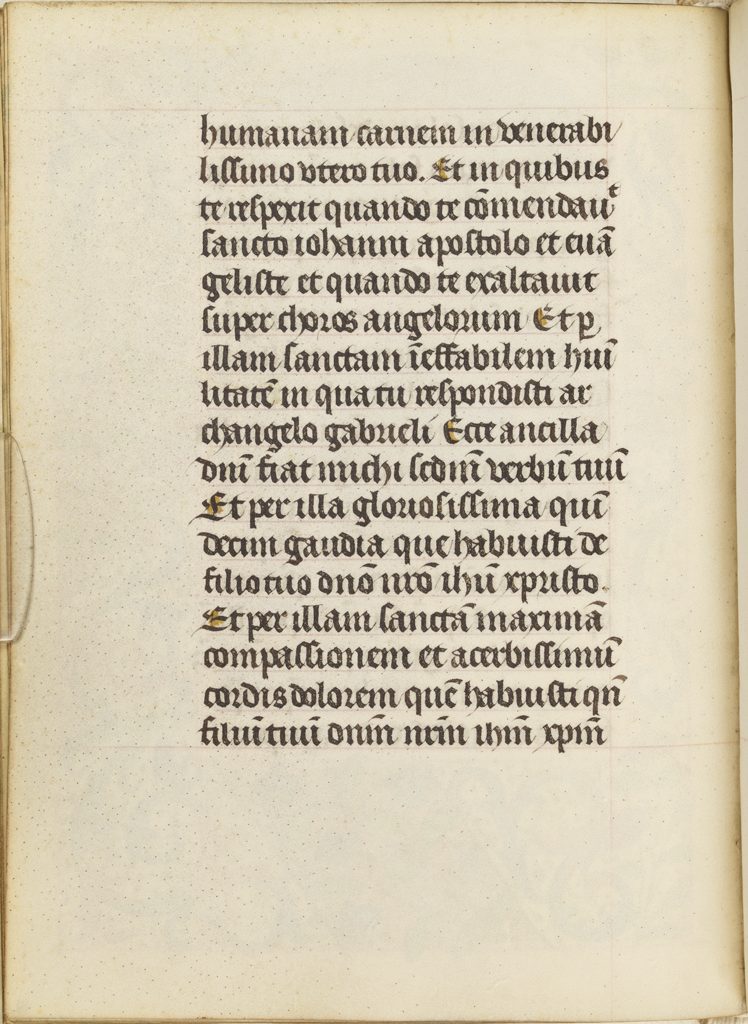 humanam carnem in venerabi
lissimo vtero tuo. Et in quibus
te respexit quando te cōmendauᵗ
sancto iohanni apostolo et euā
geliste et quando te exaltauit
super choros angelorum Et ꝑ
illam sanctam īeffabilem hūi
litatē in qua tu respondisti ar
changelo gabrieli Ecce ancilla
dnī fiat michi scdm̄ verbū tuū
Et per illa gloriosissima quī
decim gaudia que habuisti de
filio tuo dnō nrō ihū xpristo.
Et per illam sanctā maximā
compassionem et acerbissimū
cordis dolorem quē habuisti qn̄
filiū tuū dnm̄ nrm̄ ihm̄ xpm̄